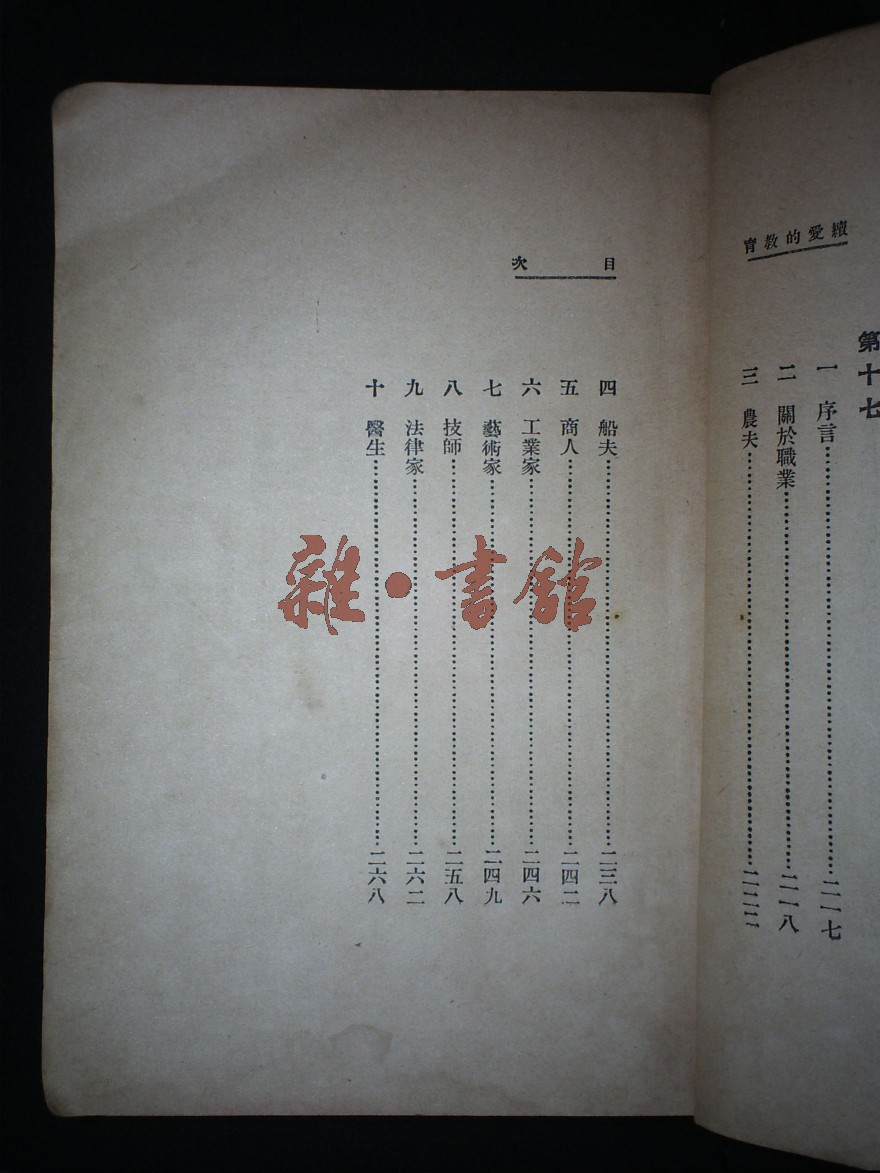 續愛的教育
第十七
一 序言……二一七
二 關於職業……二一八
三 農夫……二二二
目次
四 船夫……二三八
五 商人……二四二
六 工業家……二四六
七 藝術家……二四九
八 技師……二五八
九 法律家……二六二
十 醫生……二六八
雜·書館